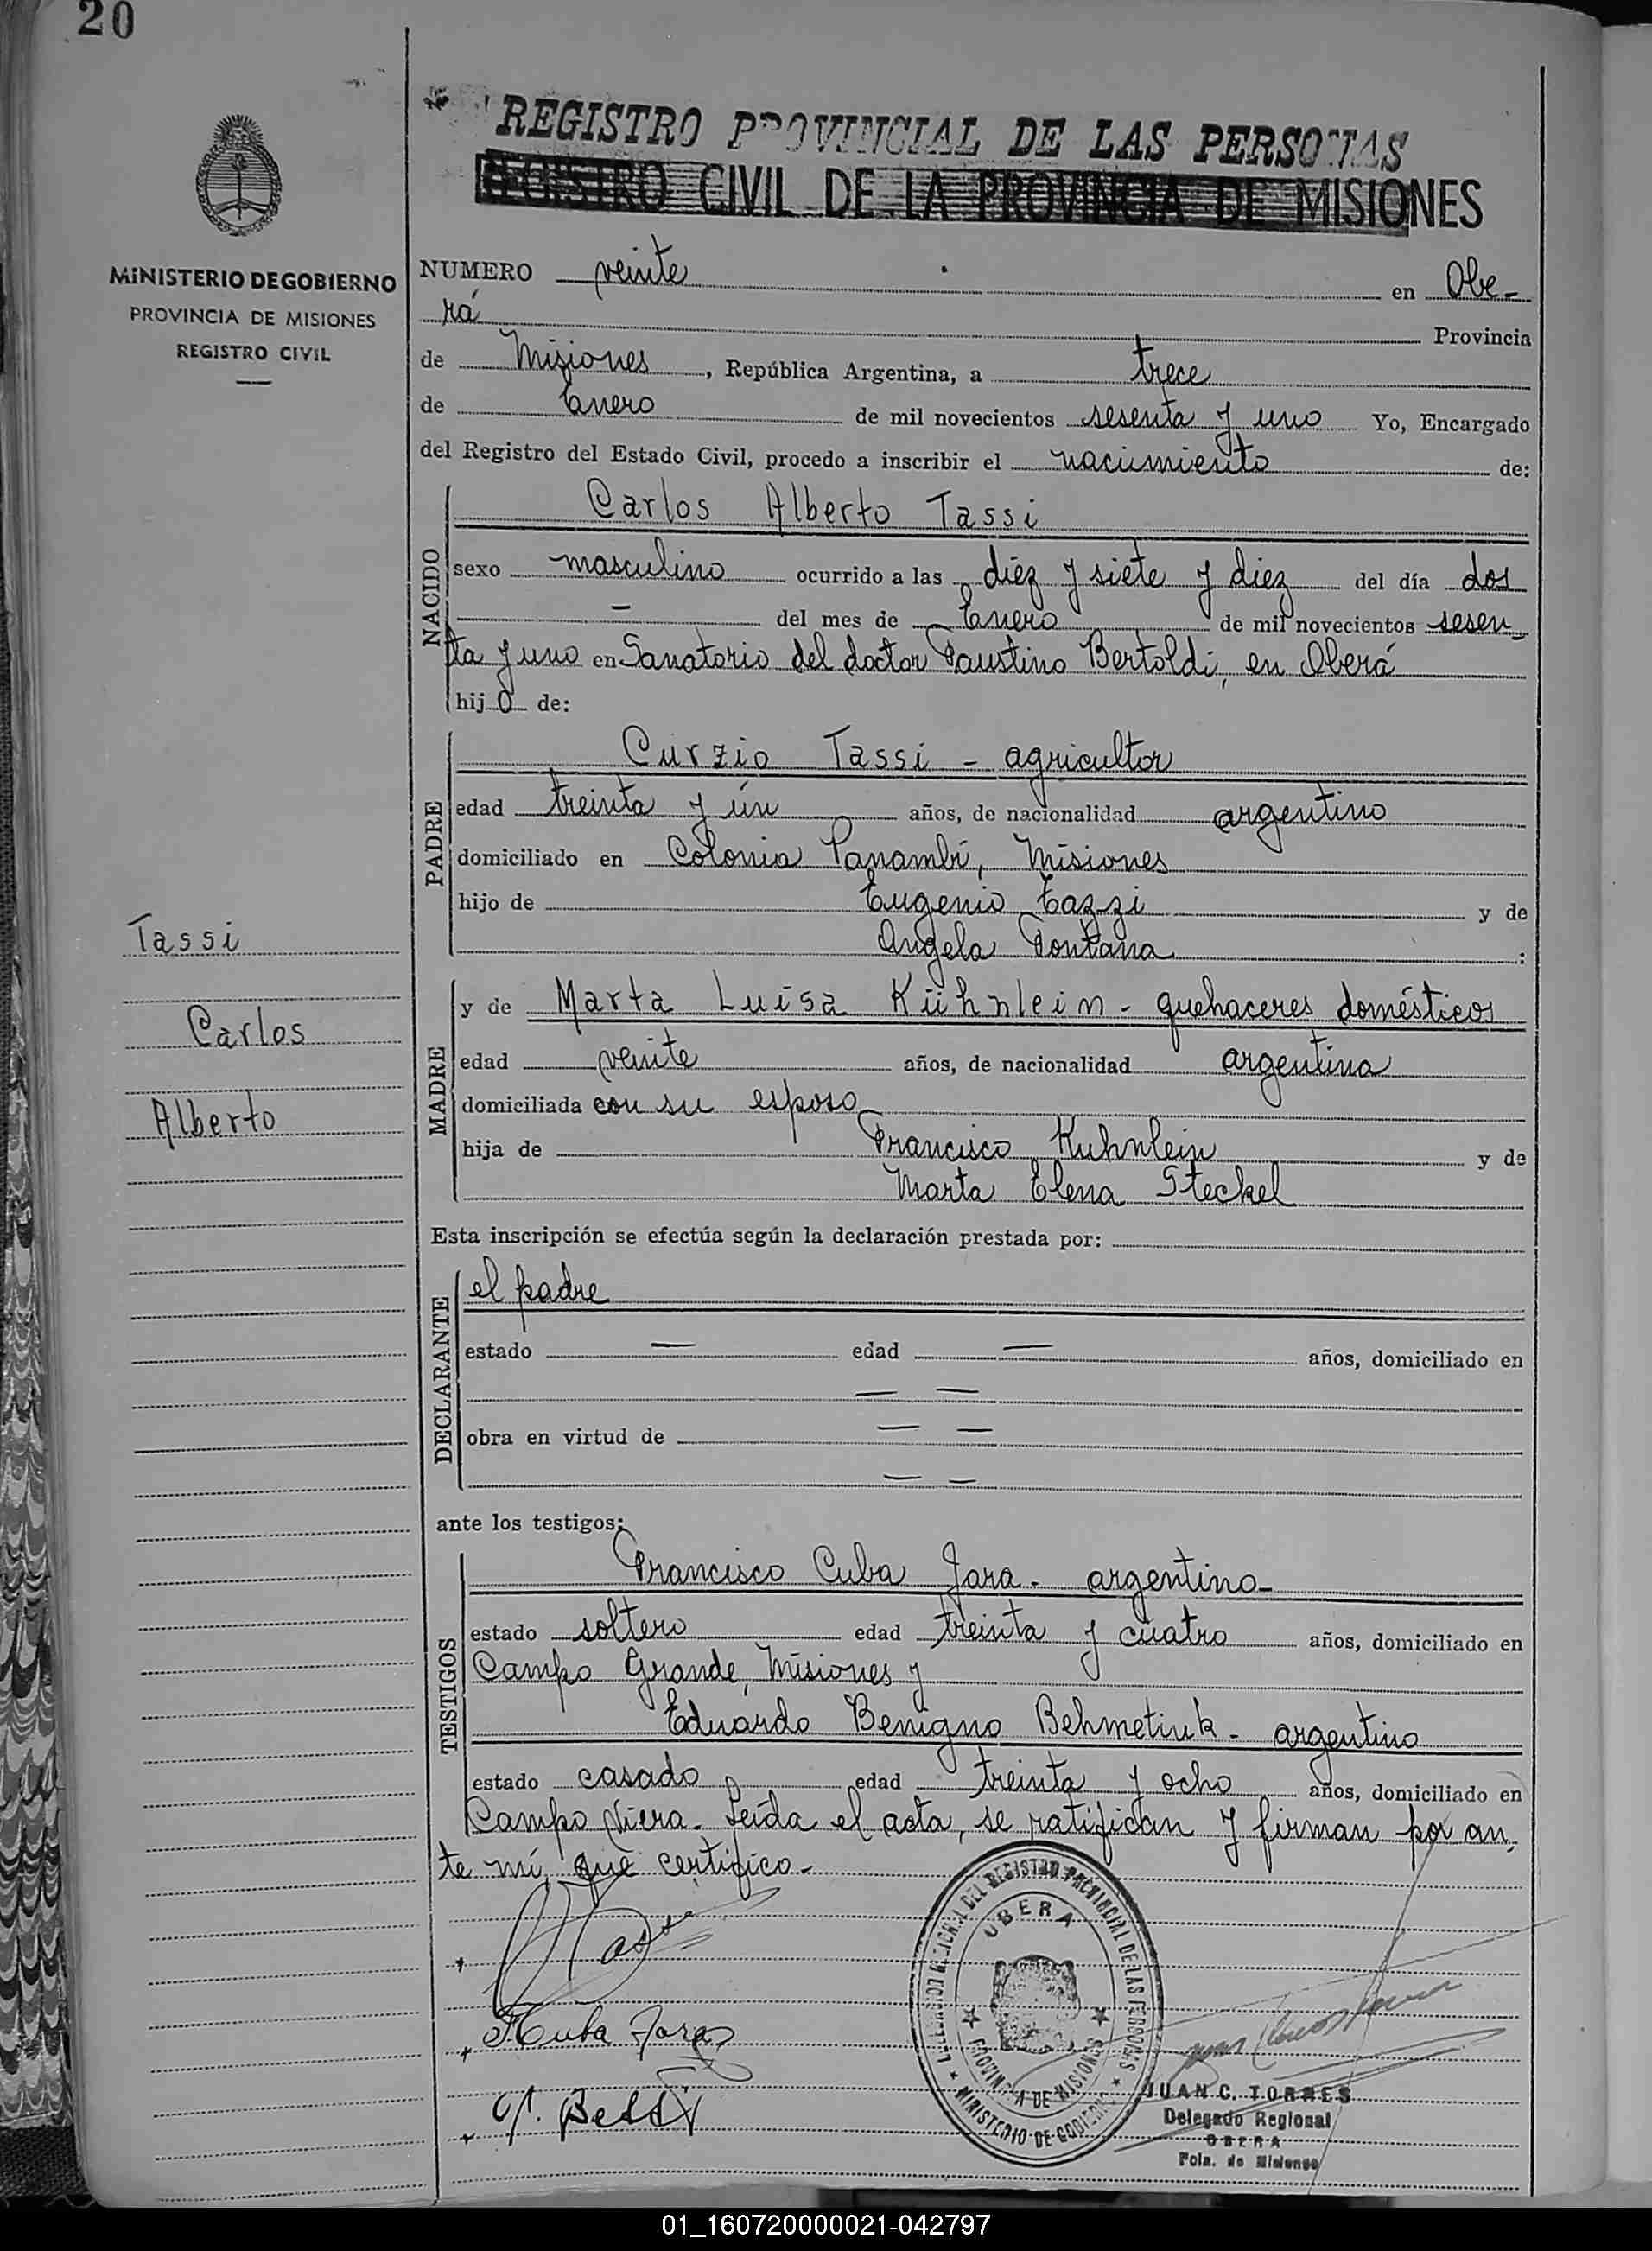 20
REGISTRO PROVINCIAL DE LAS PERSONAS
REGISTRO CIVIL DE LA PROVINCIA DE MISIONES
MINISTERIO DE GOBIERNO
PROVINCIA DE MISIONES
REGISTRO CIVIL
NUMERO veinte en Obe-
rá Provincia
de Misiones, República Argentina, a trece
de Enero de mil novecientos sesenta y uno Yo, Encargado
del Registro del Estado Civil, procedo a inscribir el nacimiento de:
NACIDO
Carlos Alberto Tassi
sexo masculino ocurrido a las diéz y siete y diez del día dos
— del mes de Enero de mil novecientos sesen-
ta y uno en Sanatorio del doctor Faustino Bertoldi, en Oberá
hijo de:
PADRE
Curzio Tassi - agricultor
edad treinta y ún años, de nacionalidad argentino
domiciliado en Colonia Panambí, Misiones
hijo de Eugenio Tazzi y de
Angela Fontana :
Tassi
Carlos
Alberto
MADRE
y de Marta Luisa Kühnlein - quehaceres domésticos
edad veinte años, de nacionalidad argentina
domiciliada con su esposo
hija de Francisco Kuhnlein y de
Marta Elena Steckel
Esta inscripción se efectúa según la declaración prestada por:
DECLARANTE
el padre
estado — edad — años, domiciliado en
— —
obra en virtud de — —
— —
ante los testigos:
TESTIGOS
Francisco Cuba Jara - argentino-
estado soltero edad treinta y cuatro años, domiciliado en
Campo Grande, Misiones y
Eduardo Benigno Behmetiuk - argentino
estado casado edad treinta y ocho años, domiciliado en
Campo Viera. Leída el acta, se ratifican y firman por an-
te mí, que certifico.-
OBERA
PROVINCIA DE MISIONES
MINISTERIO DE GOBIERNO
JUAN C. TORRES
Delegado Regional
OBERA
Pcia. de Misiones
01_160720000021-042797